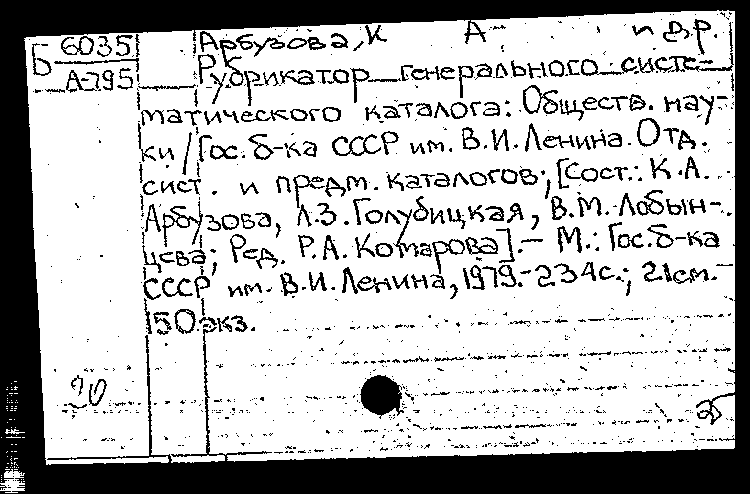 Б 6035 Арбузова, К А и др.
А-795 Рубрикатор генерального систе-
матического каталога: Обществ. нау-
ки / Гос. б-ка СССР им. В.И. Ленина. Отд.
сист. и предм. каталогов; [Сост.: К.А.
Арбузова, Л.З. Голубицкая, В.М. Лобын-
цева; Ред. Р.А. Комарова]. - М.: Гос. б-ка
СССР им. В.И. Ленина, 1979. - 234с.; 21см. -
150экз.